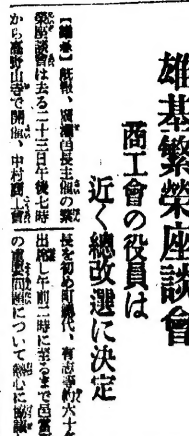 雄基繁榮座談會
商工會の役員は
近く總改選に決定
【雄基】既報、廣瀬邑長主催の繁
榮座談會は去る二十三日午後七時
から高野山寺で開催、中村商工會
長を初め町總代、有志等約六十名
出席し午前二時に至るまで邑當面
の重要問題について熱心に協議